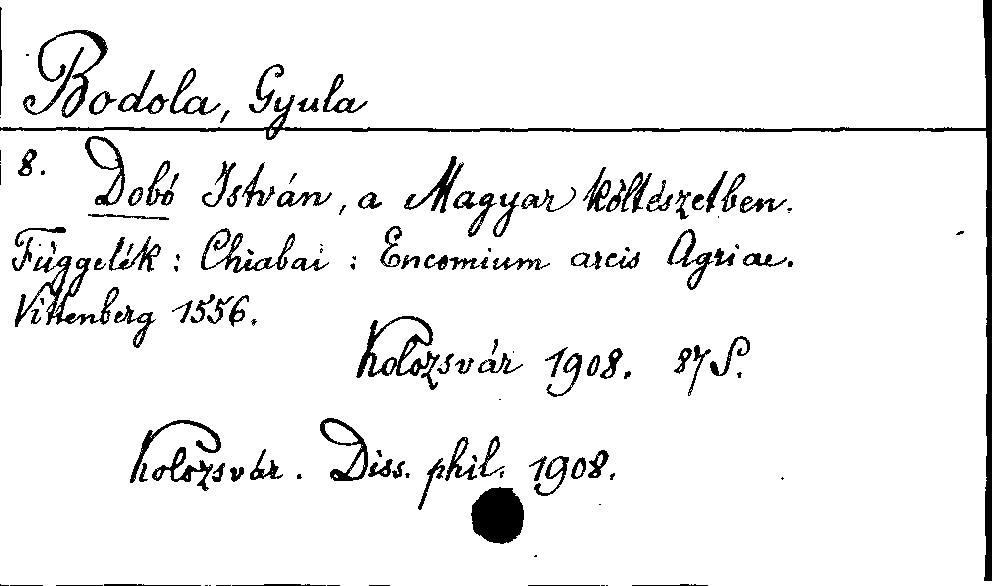 Bodola, Gyula
8. Dobó István, a Magyar költészetben.
Függelék : Chiabai : Encomium arcis Agriae.
Vittenberg 1556.
Kolozsvár 1908. 87 S.
Kolozsvár. Diss. phil. 1908.